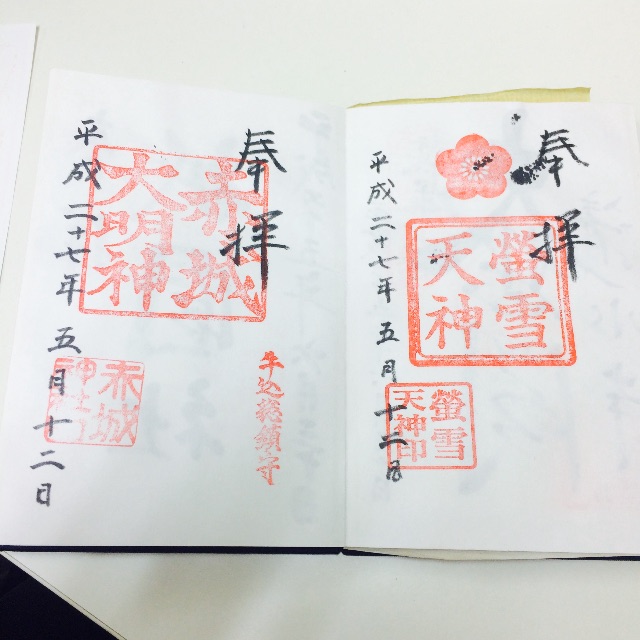 奉拝
螢雪天神
螢雪天神印
平成二十七年五月十二日
奉拝
赤城大明神
牛込総鎮守
赤城神社
平成二十七年五月十二日